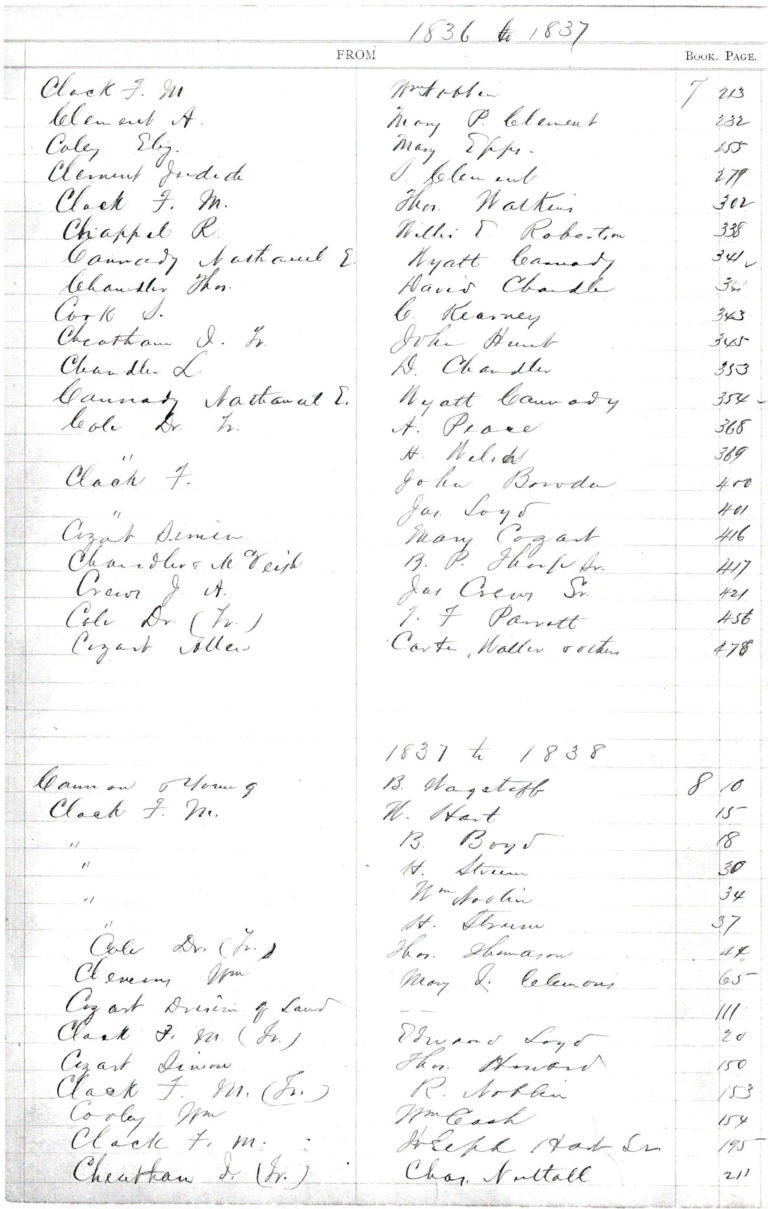 1836 to 1837
FROM BOOK. PAGE.
Clack F. M Wm Noblin 7 213
Clement A. Mary P. Clement 232
Coley Eliz. Mary Epps. 255
Clement Clement 279
Clack F. M. Thos. Watkins 302
Chappel R. Willis E. Robertson 338
Cannady Nathaniel E Wyatt Cannady 341
Chandler Thos. David Chandler
Cook S. C. Kearney 343
Cheatham I. Tr. John Hunt 345
Chandler L D. Chandler 353
Cannady Nathaniel E. Wyatt Cannady 354
Cole Dr. Tr. A. Peace 368
" H. 369
Clack F. John Bowden 400
" Jas Loyd 401
Cozart Simeon Mary Cozart 416
Chandler & McVeigh B. P. Thorp Sr. 417
Crews J. A. Jas Crews Sr. 421
Cole Dr. (Tr.) T. F Parrott 456
Cozart Allen Carter, Waller & others 478
1837 to 1838
Cannon & Young B. Wagstaff 8 10
Clack F. M. W. Hart 15
" B. Boyd 18
" H. Strum 30
" Wm Noblin 34
" H. Strum 37
Cole Dr. (Tr.) Thos. Thomason 44
Clemons Wm Mary I. Clemons 65
Cozart Division of Land -- 111
Clack F. M. (Tr.) Edward Loyd 20
Cozart Simeon Thos. Howard 150
Clack F. M. (Tr.) R. Noblin 153
Cooley Wm Wm Cash 154
Clack F. M. Joseph Hart Sr. 195
Cheatham Is (Tr.) Chas. Nuttall 211